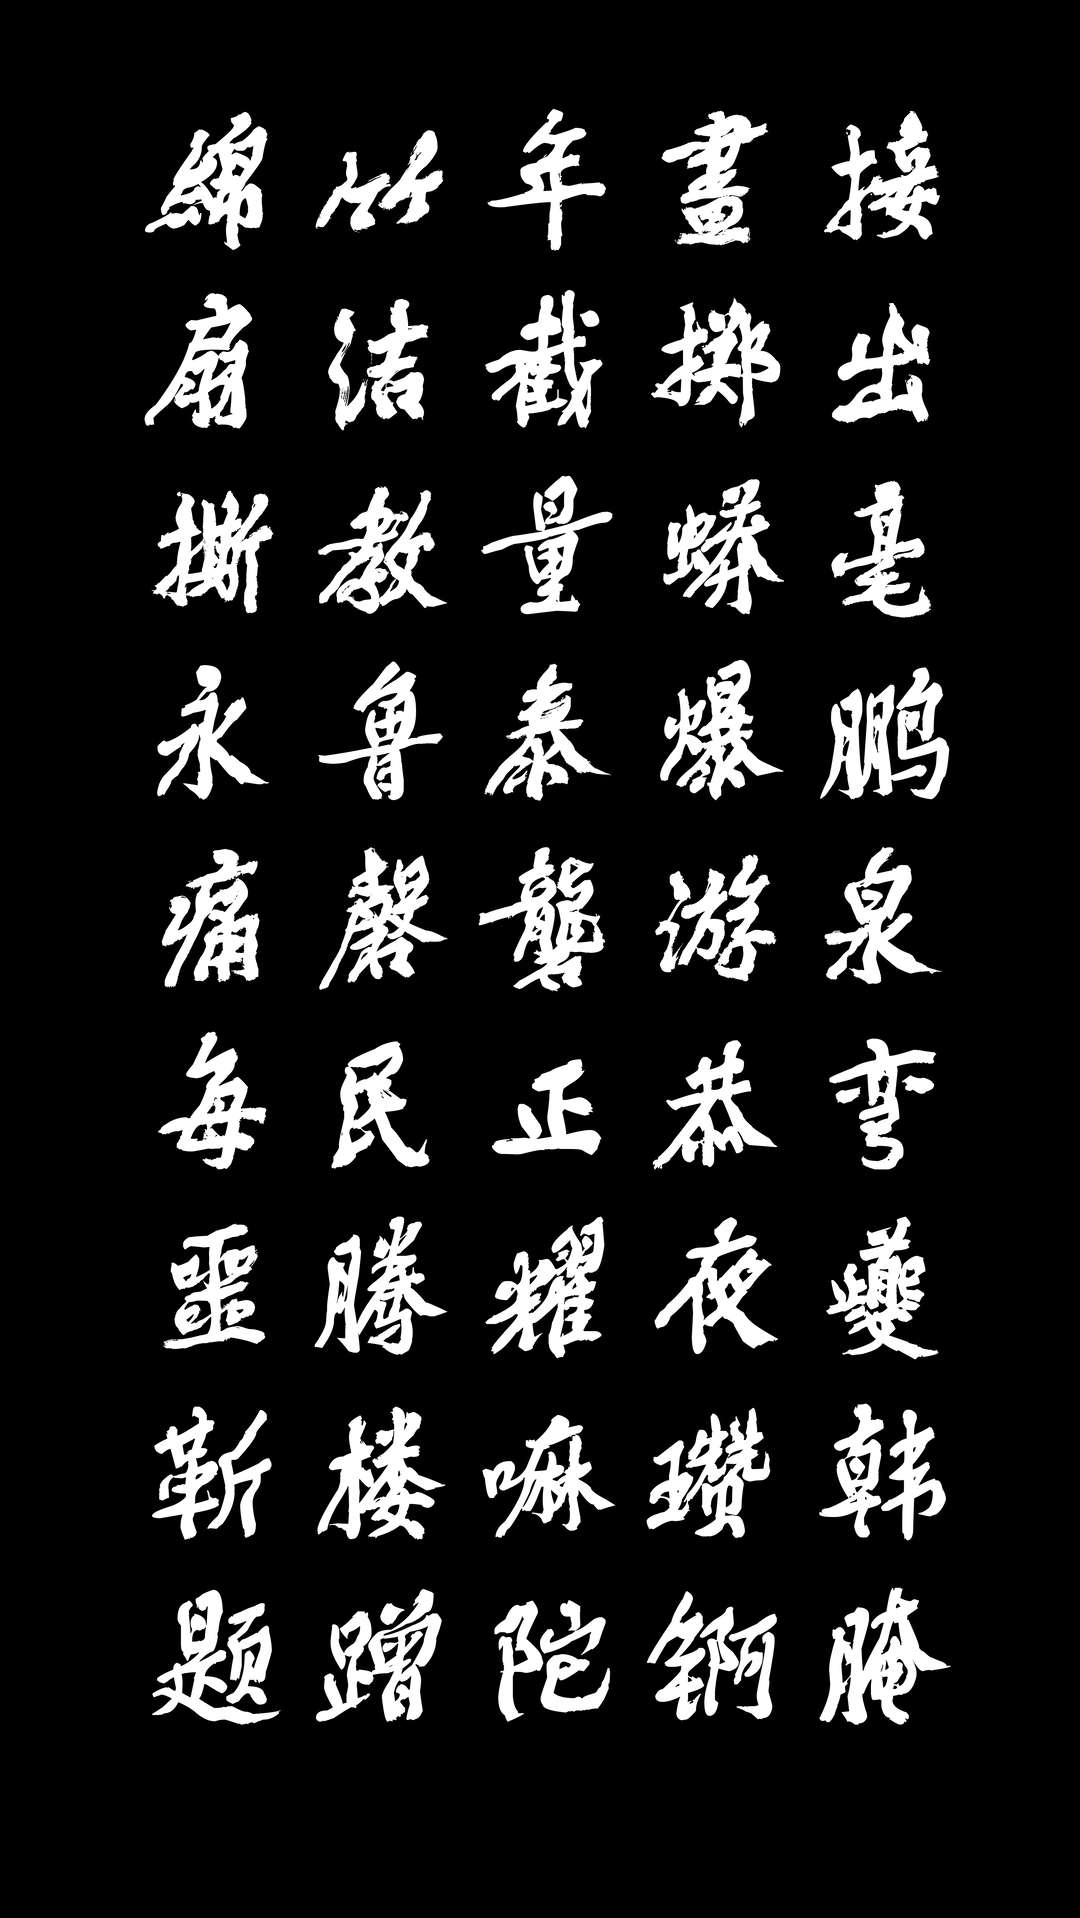 綿竹年畫接
扇洁截掷出
撕教量蟒毫
永鲁泰爆鹏
痛磬龚游泉
每民正恭弯
噩腾耀夜夔
靳楼嘛瓒韩
题蹭陀锕腌